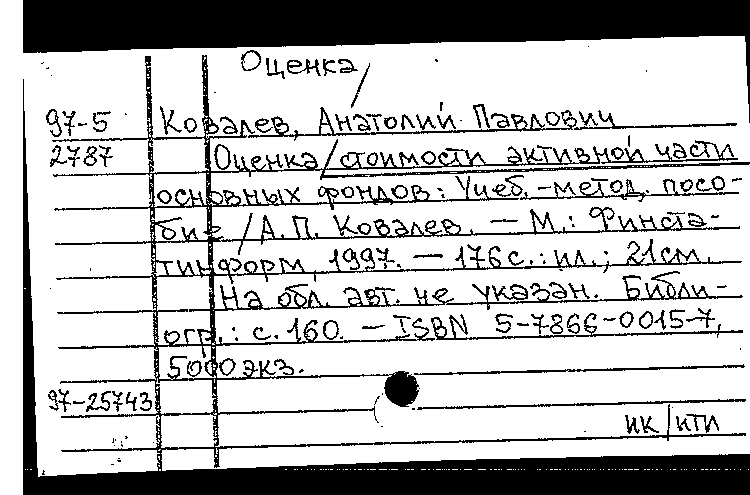 Оценка/
97-5 Ковалев, Анатолий Павлович
2787 Оценка/стоимости активной части
основных фондов: Учеб.-метод. посо-
бие/А.П. Ковалев. — М.: Финста-
тинформ, 1997. — 176 с.: ил.; 21 см.
На обл. авт. не указан. Библи-
огр.: с. 160. — ISBN 5-7866-0015-7,
5000 экз.
97-25743
ик/ити